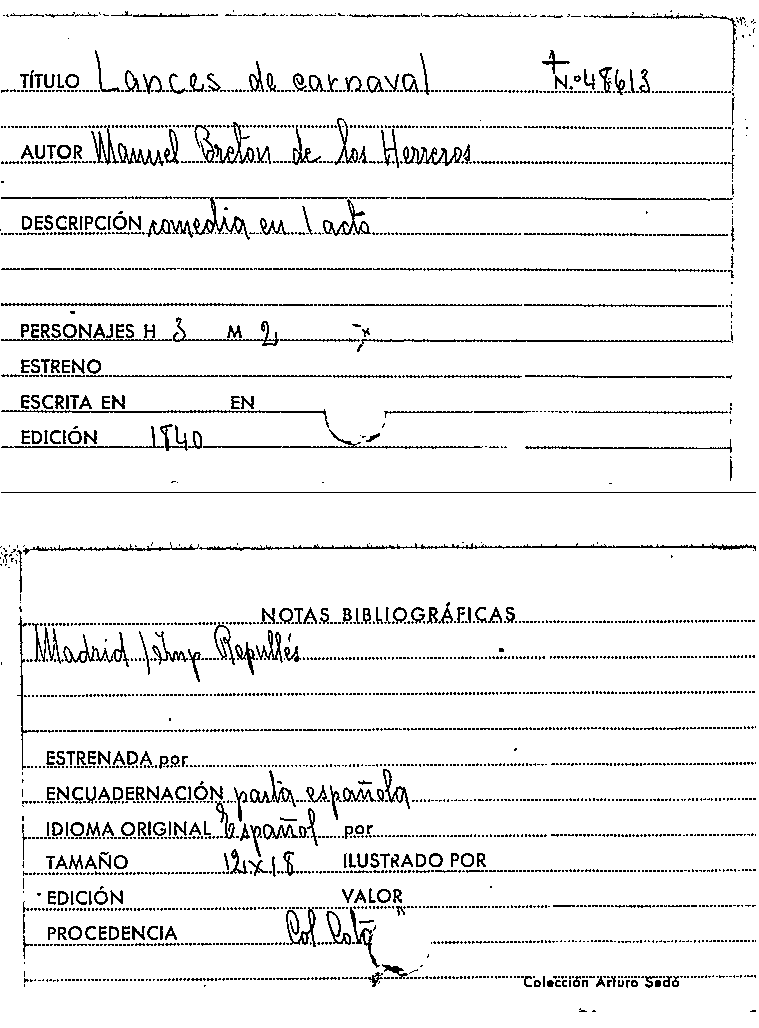 TÍTULO Lances de carnaval N.º 48613
AUTOR Manuel Breton de los Herreros
DESCRIPCIÓN comedia en 1 acto
PERSONAJES H 3 M 2
ESTRENO
ESCRITA EN EN
EDICIÓN 1840
NOTAS BIBLIOGRÁFICAS
Madrid / Imp Repullés
ESTRENADA por
ENCUADERNACIÓN pasta española
IDIOMA ORIGINAL Español por
TAMAÑO 12x18 ILUSTRADO POR
EDICIÓN VALOR
PROCEDENCIA Col.
Colección Arturo Sedó